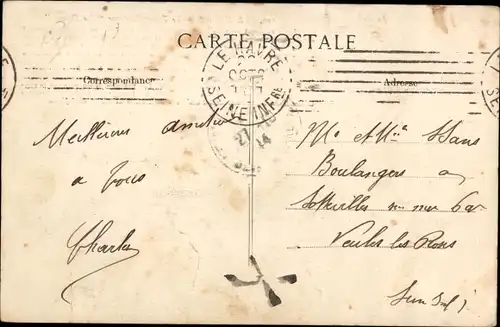 CARTE POSTALE
Correspondance
Adresse
LE HAVRE
SEINE INF RE
27 10
14
Meilleures amitiés
a tous
Charles
Mr et Mme
Boulangers a
Sotteville sur mer par
Veules les Roses
Sein Inf